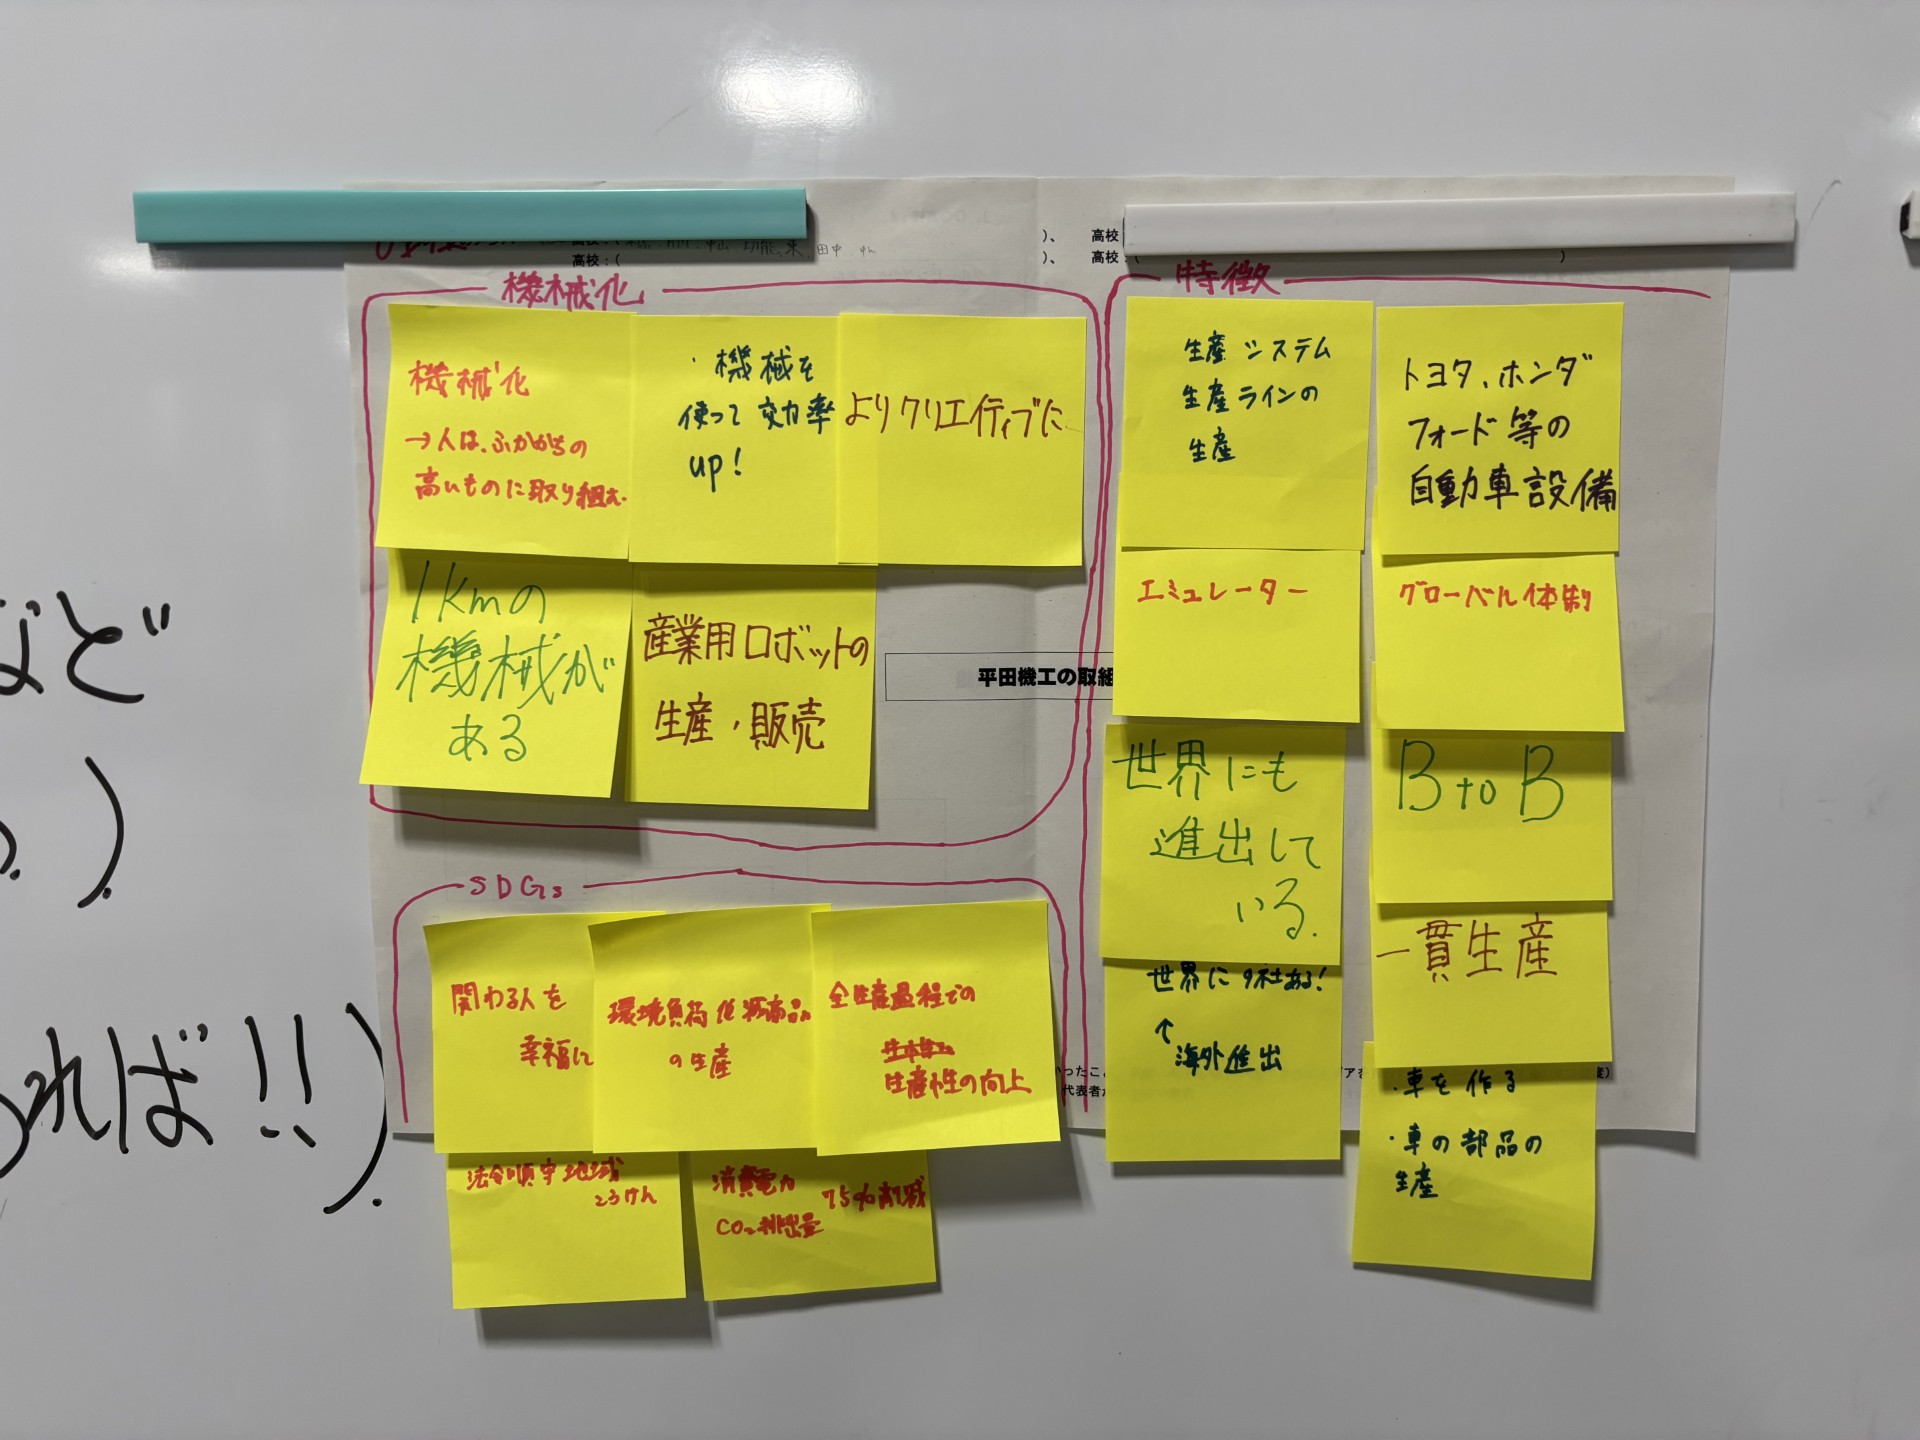 高校：(
)、
高校
高校：(
)、
高校：(
)
田中
機械化
機械化
→人は、ふかかちの
高いものに取り組む.
・機械を
使って効率
up!
よりクリエイティブに
1kmの
機械が
ある
産業用ロボットの
生産・販売
平田機工の取組
特徴
生産システム
生産ラインの
生産
トヨタ、ホンダ
フォード等の
自動車設備
エミュレーター
グローバル体制
世界にも
進出して
いる.
B to B
世界に9社ある!
↑
海外進出
一貫生産
・車を作る
・車の部品の
生産
SDGs
関わる人を
幸福に
環境負荷低減商品
の生産
全生産過程での
生産性の向上
法令順守 地域
こうけん
消費電力
CO₂排出量
75%削減
かったこ
代表者が
など
)
れば!!)